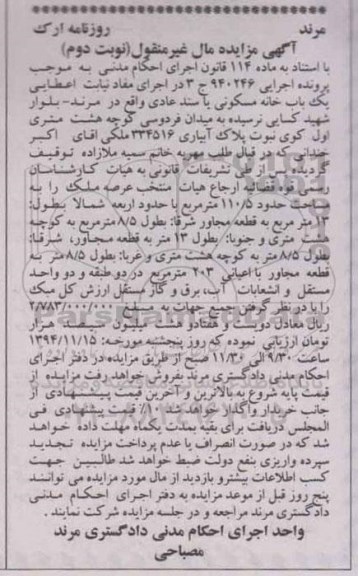 مرند روزنامه ارک
آگهی مزایده مال غیرمنقول(نوبت دوم)
با استناد به ماده ۱۱۴ قانون اجرای احکام مدنی به موجب
پرونده اجرایی ۹۴۰۲۴۶ ج ۳ در اجرای مفاد نیابت اعطایی
یک باب خانه مسکونی با سند عادی واقع در مرند- بلوار
شهید کسایی نرسیده به میدان فردوسی کوچه هشت متری
اول کوی نبوت پلاک آبیاری ۳۳۴۵۱۶ ملکی اقای اکبر
خندانی که در قبال طلب مهریه خانم سمیه ملازاده توقیف
گردیده پس از طی تشریفات قانونی به هیات کارشناسان
رسمی قوه قضائیه ارجاع هیات منتخب عرصه ملک را به
مساحت حدود ۱۱۰/۵ مترمربع با حدود اربعه شمالا بطول:
۱۳ متر مربع به قطعه مجاور شرقا: بطول ۸/۵ مترمربع به کوچه
هشت متری و جنوبا: بطول ۱۳ متر به قطعه مجاور، شرقا:
بطول ۸/۵ متر به کوچه هشت متری و غربا: بطول ۸/۵ متر به
قطعه مجاور با اعیانی ۲۰۳ مترمربع در دو طبقه و دو واحد
مستقل و انشعابات آب، برق و گاز مستقل ارزش کل ملک
را با در نظر گرفتن جمیع جهات به مبلغ ۲/۷۸۳/۰۰۰/۰۰۰
ریال معادل دویست و هفتاد و هشت میلیون سیصد هزار
تومان ارزیابی نموده که روز پنجشنبه مورخه: ۱۳۹۴/۱۱/۱۵
ساعت ۹/۳۰ الی ۱۱/۳۰ صبح از طریق مزایده در دفتر اجرای
احکام مدنی دادگستری مرند بفروش خواهد رفت مزایده از
قیمت پایه شروع به بالاترین و آخرین قیمت پیشنهادی از
جانب خریدار واگذار خواهد شد ۱۰٪ قیمت پیشنهادی فی
المجلس دریافت برای بقیه بمدت یکماه مهلت داده خواهد
شد که در صورت انصراف یا عدم پرداخت مزایده تجدید
سپرده واریزی بنفع دولت ضبط خواهد شد طالبین جهت
کسب اطلاعات بیشتر و بازدید از مال مورد مزایده می توانند
پنج روز قبل از موعد مزایده به دفتر اجرای احکام مدنی
دادگستری مرند مراجعه و در جلسه مزایده شرکت نمایند .
واحد اجرای احکام مدنی دادگستری مرند
مصباحی